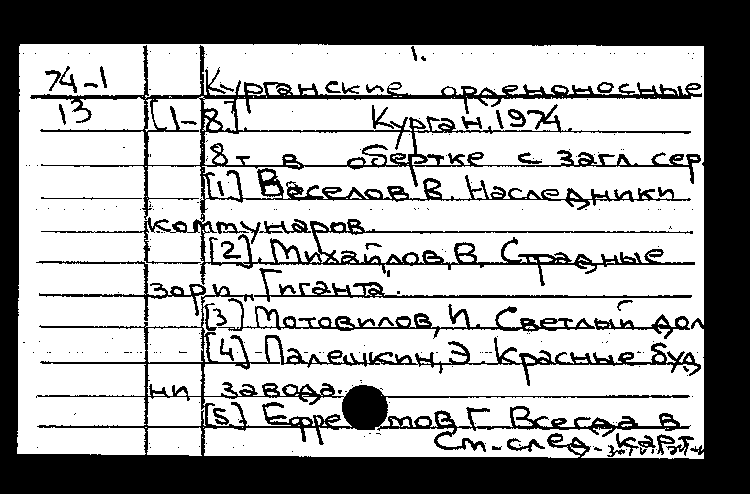 1.
74-1 Курганские орденоносные
13 [1-8]. Курган, 1974.
8т в обертке с загл. сер.
[1] Васелов В. Наследники
коммунаров.
[2]. Михайлов, В. Страдные
зори „Гиганта".
[3] Мотовилов, И. Светлый дол
[4] Палешкин, Э. Красные буд
ни завода.
[5] Ефре мов Г. Всегда в
См-след-карт